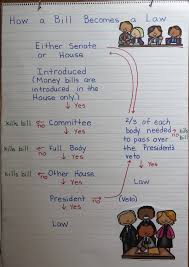 How a Bill Becomes a Law
Either Senate
or House
Introduced
(Money bills are
introduced in the
House only.)
Yes
kills bill no Committee
Yes
kills bill no Full Body
Yes
kills bill no Other House
Yes
President no (Veto)
Yes
Law
2/3 of each
body needed no kills bill
to pass over
the President's
veto
Yes
Law